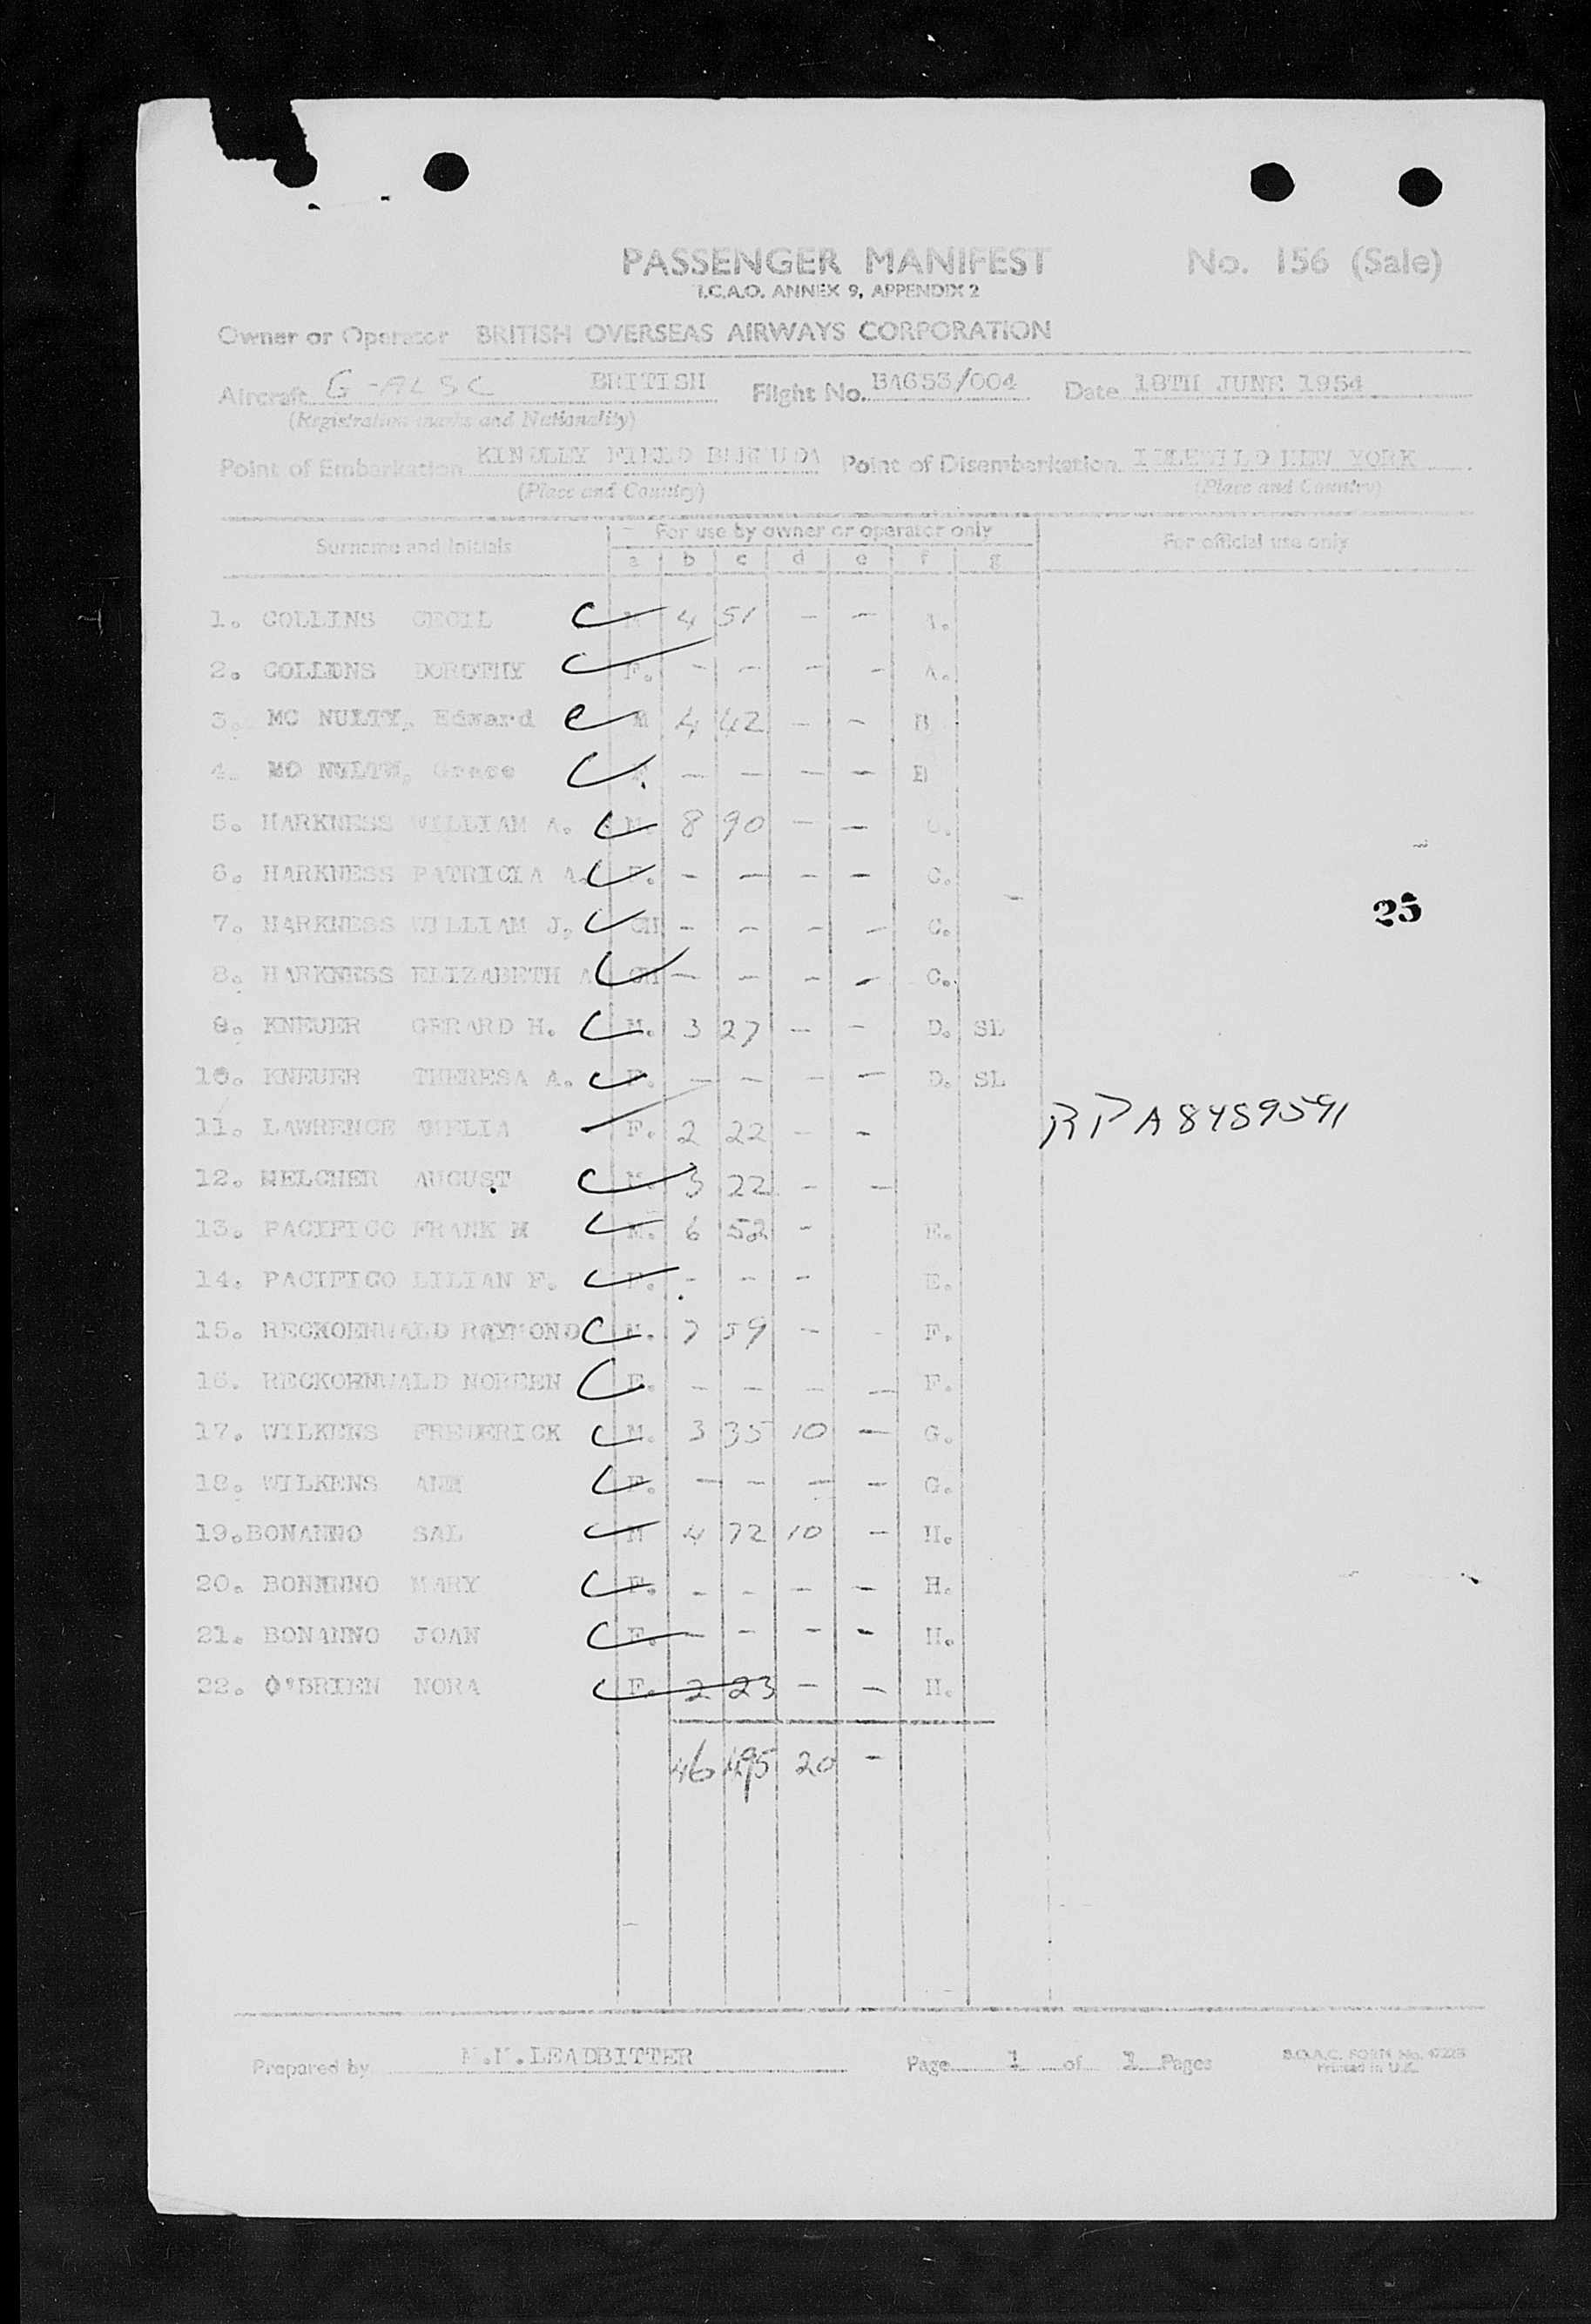 PASSENGER MANIFEST No. 156 (Sale)
I.C.A.O. ANNEX 9, APPENDIX 2
Owner or Operator BRITISH OVERSEAS AIRWAYS CORPORATION
Aircraft G-ALSC BRITISH Flight No. BA653/004 Date 18TH JUNE 1954
(Registration marks and Nationality)
Point of Embarkation KINDLEY FIELD Point of Disembarkation IDLEWILD NEW YORK
(Place and Country) (Place and Country)
Surname and Initials For use by owner or operator only For official use only
a b c d e f g
1. COLLINS CECIL C M 4 51 - - A.
2. COLLINS DOROTHY C F. - - - - A.
3. MC NULTY, Edward C M 4 42 - - B
4. MC NULTY, Grace C F - - - - B
5. HARKNESS WILLIAM A. C M. 8 90 - - C.
6. HARKNESS PATRICIA A. C F. - - - - C.
7. HARKNESS WILLIAM J, C CH - - - - C.
25
8. HARKNESS ELIZABETH A C CH - - - - C.
9. KNEUER GERARD H. C M. 3 27 - - D. SL
10. KNEUER THERESA A. C F. - - - - D. SL
11. LAWRENCE AMELIA F. 2 22 - - RP A8459591
12. MELCHER AUGUST C M. 3 22 - -
13. PACIFICO FRANK M C M. 6 52 - E.
14. PACIFICO LILIAN F. C F. - - - E.
15. RECKOENWALD RAYMOND C M. 7 59 - - F.
16. RECKORNWALD NOREEN C F. - - - - F.
17. WILKENS FREDERICK C M. 3 35 10 - G.
18. WILKENS ANN C F. - - - - G.
19.BONANNO SAL C M 4 72 10 - H.
20. BONANNO MARY C F. - - - - H.
21. BONANNO JOAN C F. - - - - H.
22. O'BRIEN NORA C F. 2 23 - - H.
46 495 20 -
Prepared by LEADBITTER Page 1 of 1 Pages
B.O.A.C. FORM No.
Printed in U.K.